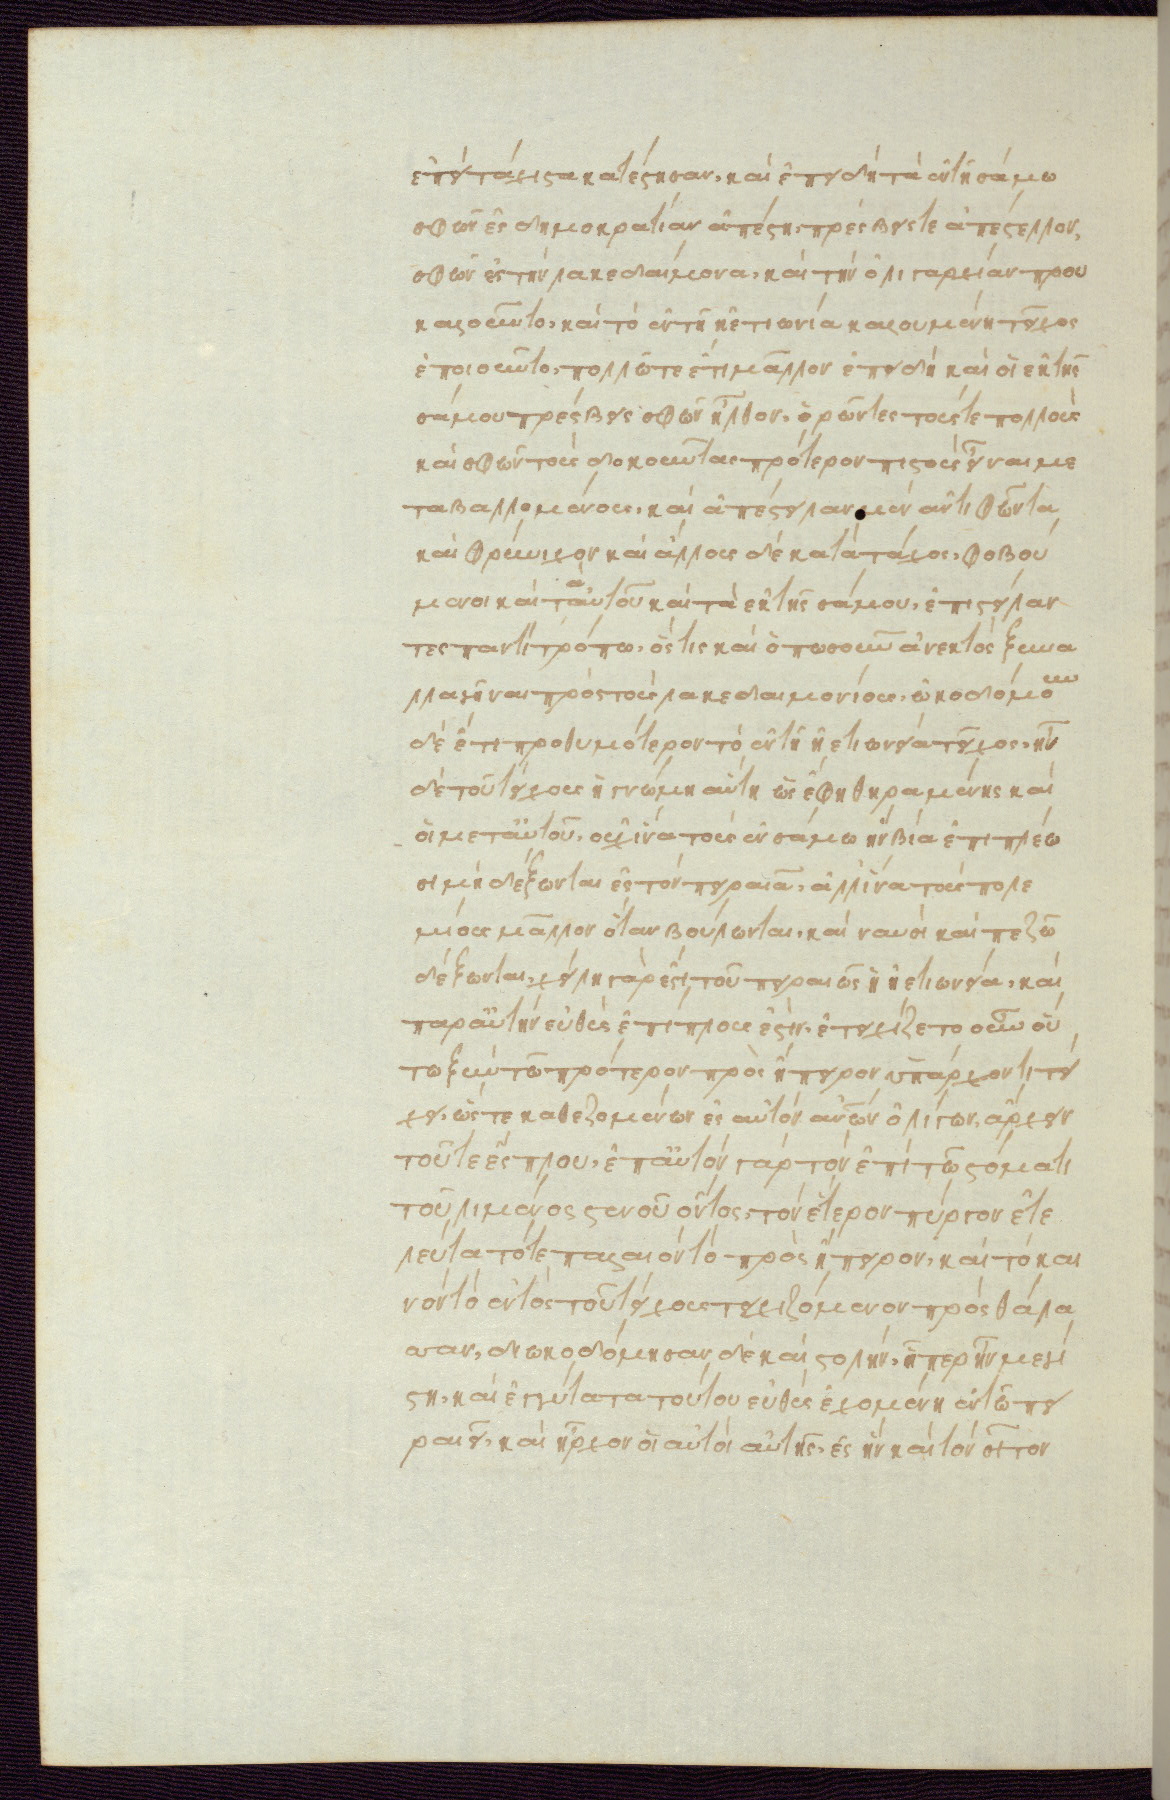 ἐπεὶ τάχιστα κατέστησαν, καὶ ἐπειδὴ τὰ ἐν τῆ σάμω
σφῶν ἐς δημοκρατίαν ἀπέστη, πρέσβεις τε ἀπέστελλον
σφῶν ἐς τὴν λακεδαίμονα, καὶ τὴν ὁλιγαρχίαν πρου
καλοῦντο, καὶ τὸ ἐν τῆ ἠετιωνία καλουμένη τεῖχος
ἐποιοῦντο, πολλῶ τε ἔτι μᾶλλον ἐπειδὴ καὶ οἱ ἐκ τῆς
σάμου πρέσβεις σφῶν ἦλθον, ὁρῶντες τούς τε πολλοὺς
καὶ σφῶν τοὺς δοκοῦντας πρότερον πιστοὺς εἶναι με
ταβαλλομένους, καὶ ἀπέστειλαν μὲν ἀντιφῶντα
καὶ φρύνιχον καὶ ἄλλους δὲ κατὰ τάχος, φοβού
μενοι καὶ τὰ αὐτοῦ καὶ τὰ ἐκ τῆς σάμου, ἐπιστείλαν
τες παντὶ τρόπω, ὅστις καὶ ὁπωσοῦν ἀνεκτὸς ξυνα
λλαγῆναι πρὸς τοὺς λακεδαιμονίους, ὠκοδόμουν
δὲ ἔτι προθυμότερον τὸ ἐν τῆ ἠετιωνεία τεῖχος, ἦν
δὲ τοῦ τείχους ἡ γνώμη αὕτη ὡς ἔφη θηραμένης καὶ
οἱ μετ' αὐτοῦ, οὐχ ἵνα τοὺς ἐν σάμω ἢν βία ἐπιπλέω
σι μὴ δέξωνται ἐς τὸν πειραιᾶ, ἀλλ' ἵνα τοὺς πολε
μίους μᾶλλον ὅταν βούλωνται, καὶ ναυσὶ καὶ πεζῶ
δέξωνται, χηλὴ γὰρ ἐστὶ τοῦ πειραιῶς ἡ ἠετιωνεία, καὶ
παρ' αὐτὴν εὐθὺς ἐπίπλους ἐστὶν, ἐτειχίζετο οὖν οὕ
τω ξὺν τῶ πρότερον πρὸς ἤπειρον ὑπάρχοντι τεί
χει, ὥστε καθεζομένων ἐς αὐτὸν ἀνων ὀλίγων, ἄρχειν
τοῦ τε ἔσπλου, ἐπ' αὐτὸν γὰρ τὸν ἐπὶ τῶ στόματι
τοῦ λιμένος στενοῦ ὄντος, τὸν ἕτερον πύργον ἐτε
λεύτα τό τε παλαιὸν τὸ πρὸς ἤπειρον, καὶ τὸ και
νὸν τὸ ἐντὸς τοῦ τείχους τειχιζόμενον πρὸς θάλα
σσαν, διωκοδόμησαν δὲ καὶ στολὴν, ἥπερ ἦν μεγί
στη, καὶ ἐγγύτατα τούτου εὐθὺς ἐχομένη ἐν τῶ πει
ραιεῖ, καὶ ἦρχον οἱ αὐτοὶ αὐτῆς, ἐς ἣν καὶ τὸν σῖτον